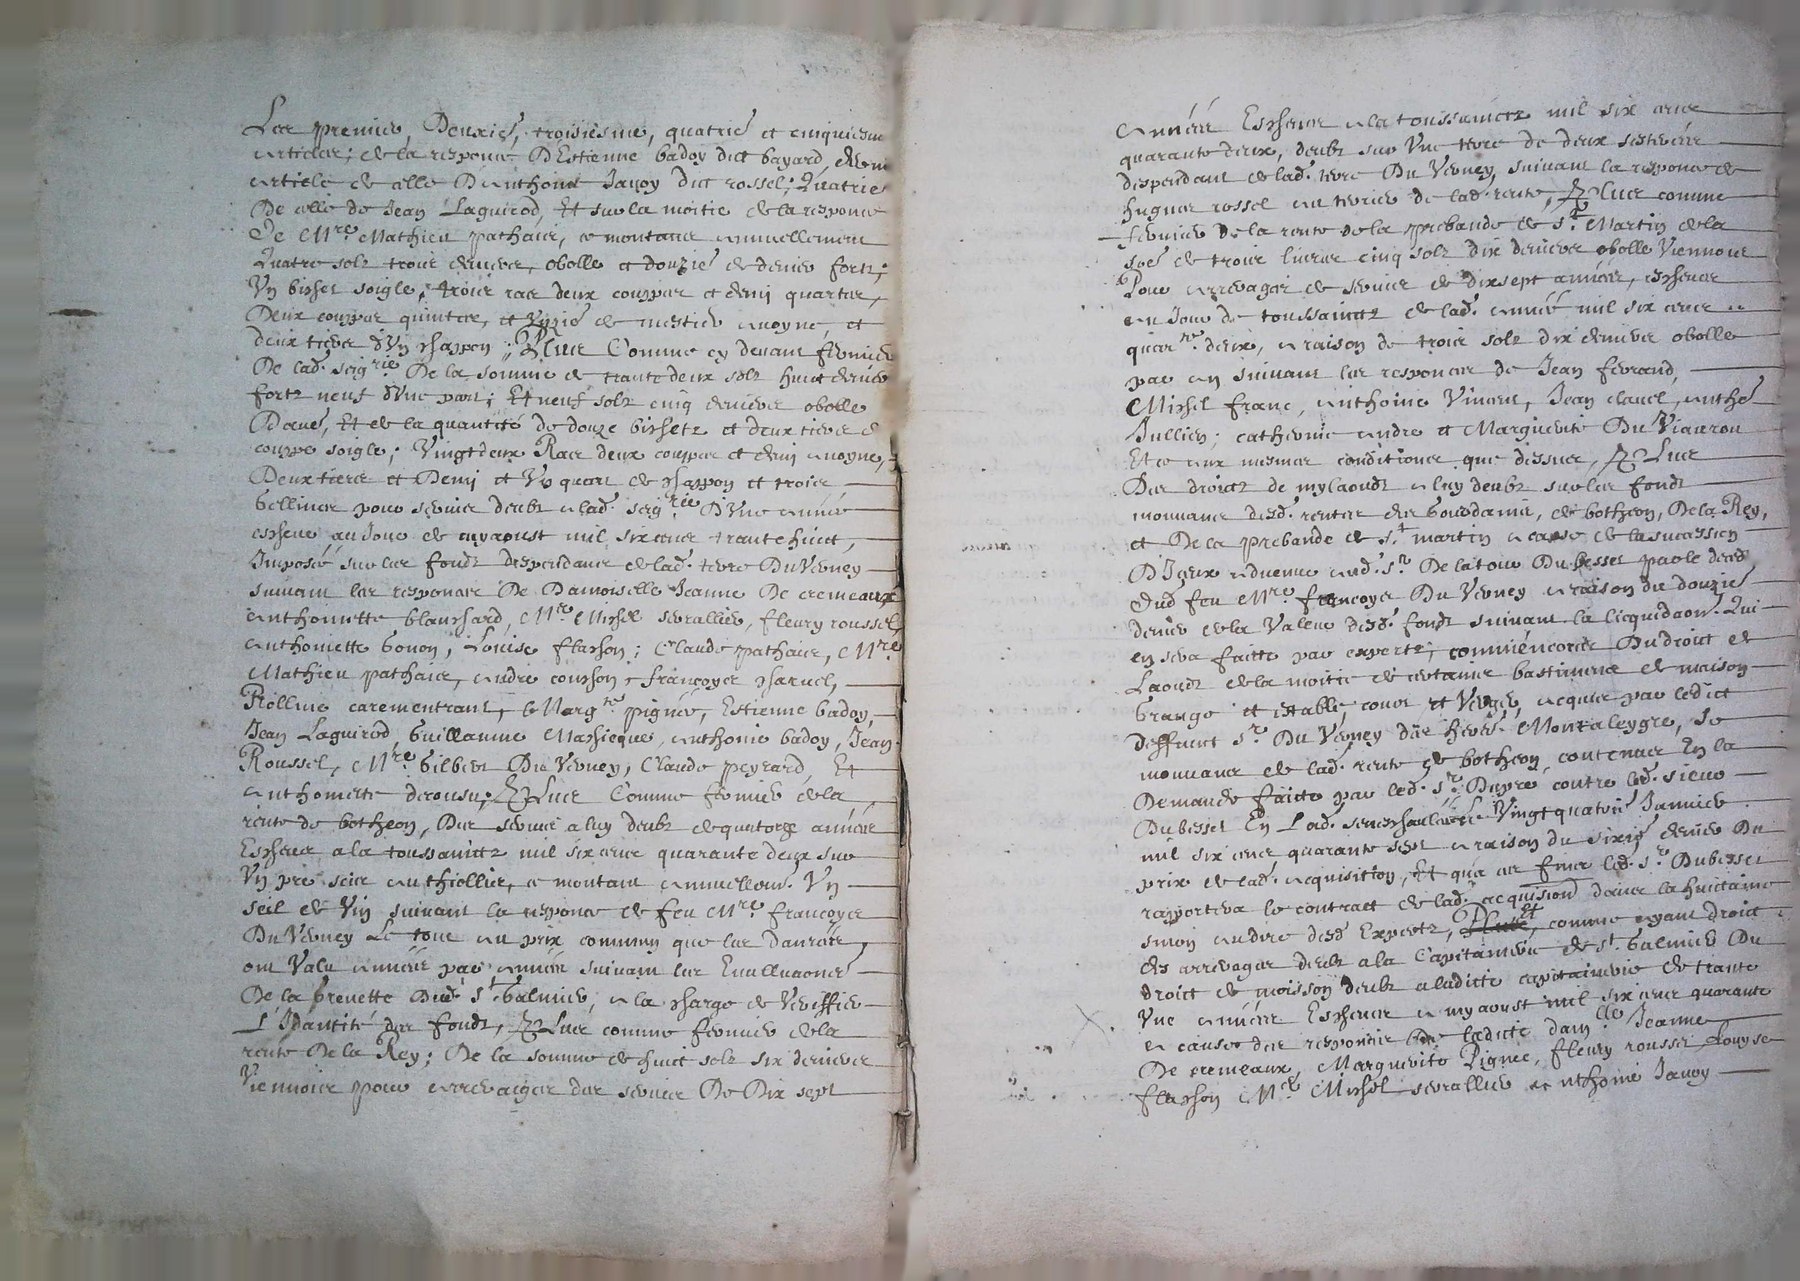 Les premier, Deuxies, troisiesme, quatries et cinquiesme
articles; de la responce D'Estienne badoy dict bayard,
article de celle D'Anthoine Jauoy dict rossel; Quatries
De celle de Jean Laguirod, Et sur la moitie de la responce
De Mre Mathieu pathaire, ce montant annuellement
Quatre solz trois deniers, obolle et douzies de denier fortz;
Vn bichet soigle, trois ras deux couppes et demy quartes,
Deux couppes quintes, et de mestier auoyne, et
deux tiers d'Vn chappon; Plus Comme cy deuant fermier
De lad. seigrie De la somme de trante deux solz huict deniers
fortz neuf d'Vne part; Et neuf solz cinq deniers obolle
Et de la quantité de douze bichetz et deux tiers de
couppe soigle; Vingtdeux Ras deux couppes et demy auoyne,
Deux tiers et Demy et Vn quart de chappon et trois
gellines pour seruis deubz a lad. seigrie D'Vne année
escheue au Jour de myaoust mil six cens trante huict,
Imposée sur les fondz despendans de lad. terre Du Verney
suiuant les responces De Damoiselle Jeanne De cremeaux
Anthoinette blanchard, Mre Michel seruallier, fleury roussel,
Anthoinette bonon, Louise flachon; Claude pathaire, Mre
Mathieu pathaire, Andre courson, françoyes charuel,
carementrant, Margte pignée, Estienne badoy,
Jean Laguirod, Guillaume Massieque, Anthoine badoy, Jean
Roussel, Mre Gilbert Du Verney, Claude peyrard, Et
Anthoinette decousu; Plus Comme fermier de la
rente de botheon, Des seruis a luy deubz de quatorze années
Escheues a la toussainctz mil six cens quarante deux sur
Vn pre scise Anthiollier, ce montant annuellemt. Vn
seil de Vin suiuant la responce de feu Mre françoyes
Du Verney Le tout au prix commun que les danrées
ont Valu années par années suiuant les Eualluaones
De la grenette Dud. St. Galmier, a la charge de Veriffier
L'Idantité des fondz, Plus comme fermier de la
rente De la Rey; De la somme de huict solz six deniers
Viennois pour arreraiges des seruis De Dix sept
années Escheues a la toussainctz mil six cens
quarante deux, deubz sur Vne terre de deux sesterées
despendant de lad. terre Du Verney, suiuant la responce de
hugues rossel au terrier de lad. rente, Plus comme
fermier de la rente de la prebande de St. Martin de la
de trois liures cinq solz dix deniers obolle Viennois
Pour arrerages de seruis de dixsept années, escheues
au Jour de toussainctz de lad. année mil six cens
quarte. deux, a raison de trois solz dix deniers obolle
par an suiuant les responces de Jean ferrand,
Michel franc, Anthoine Vincent, Jean clauel, Anthe
Jullien; catherine Andre et Marguerite Du Viauron
Et ce aux mesmes conditions que dessus, Plus
Des droictz de mylaoudz a luy deubz sur les fondz
mouuans desd. rentes de botheon, De la Rey,
et De la prebande de St. martin a cause de la sucassion
D'Iceux aduenue aud. Sr. De la tour Du besset par le deces
Dud. feu Mre françoyes Du Verney a raison du douzies
denier de la Valeur desd. fondz suiuant la licquidaon. Qui
en sera faitte par expertz, commencorer Du droict de
Laoudz de la moitie de certains bastimens de maison
Grange et estable, cour et Verger, acquise par ledict
deffunct Sr. Du Verney des hers. Montaleygre, de
mouuance de lad. rente de botheon, contenue En la
Demande faicte par led. Sr. Dupre contre led. sieur
Dubesset En Lad. seneschaulcée Vingtquatries Januier
mil six cens quarante sept a raison du sixies denier Du
prix de lad. acquisition, Et qua ces fins led. Sr. Dubesset
rapportera le contract de lad. acquisition dans la huictaine
sinon au dire desd. Expertz, Et, comme ayant droict
des arrerages deubz a la Capitainerie de St. Galmier Du
droict de moisson deubz a ladicte capitainerie de trante
Vne années Escheues a myaoust mil six cens quarante
a cause des responces de ladicte damlle Jeanne
De cremeaux, Marguerite Pignee, fleury roussel, Louyse
flachon Mre Michel seruallier Anthoine Jauoy